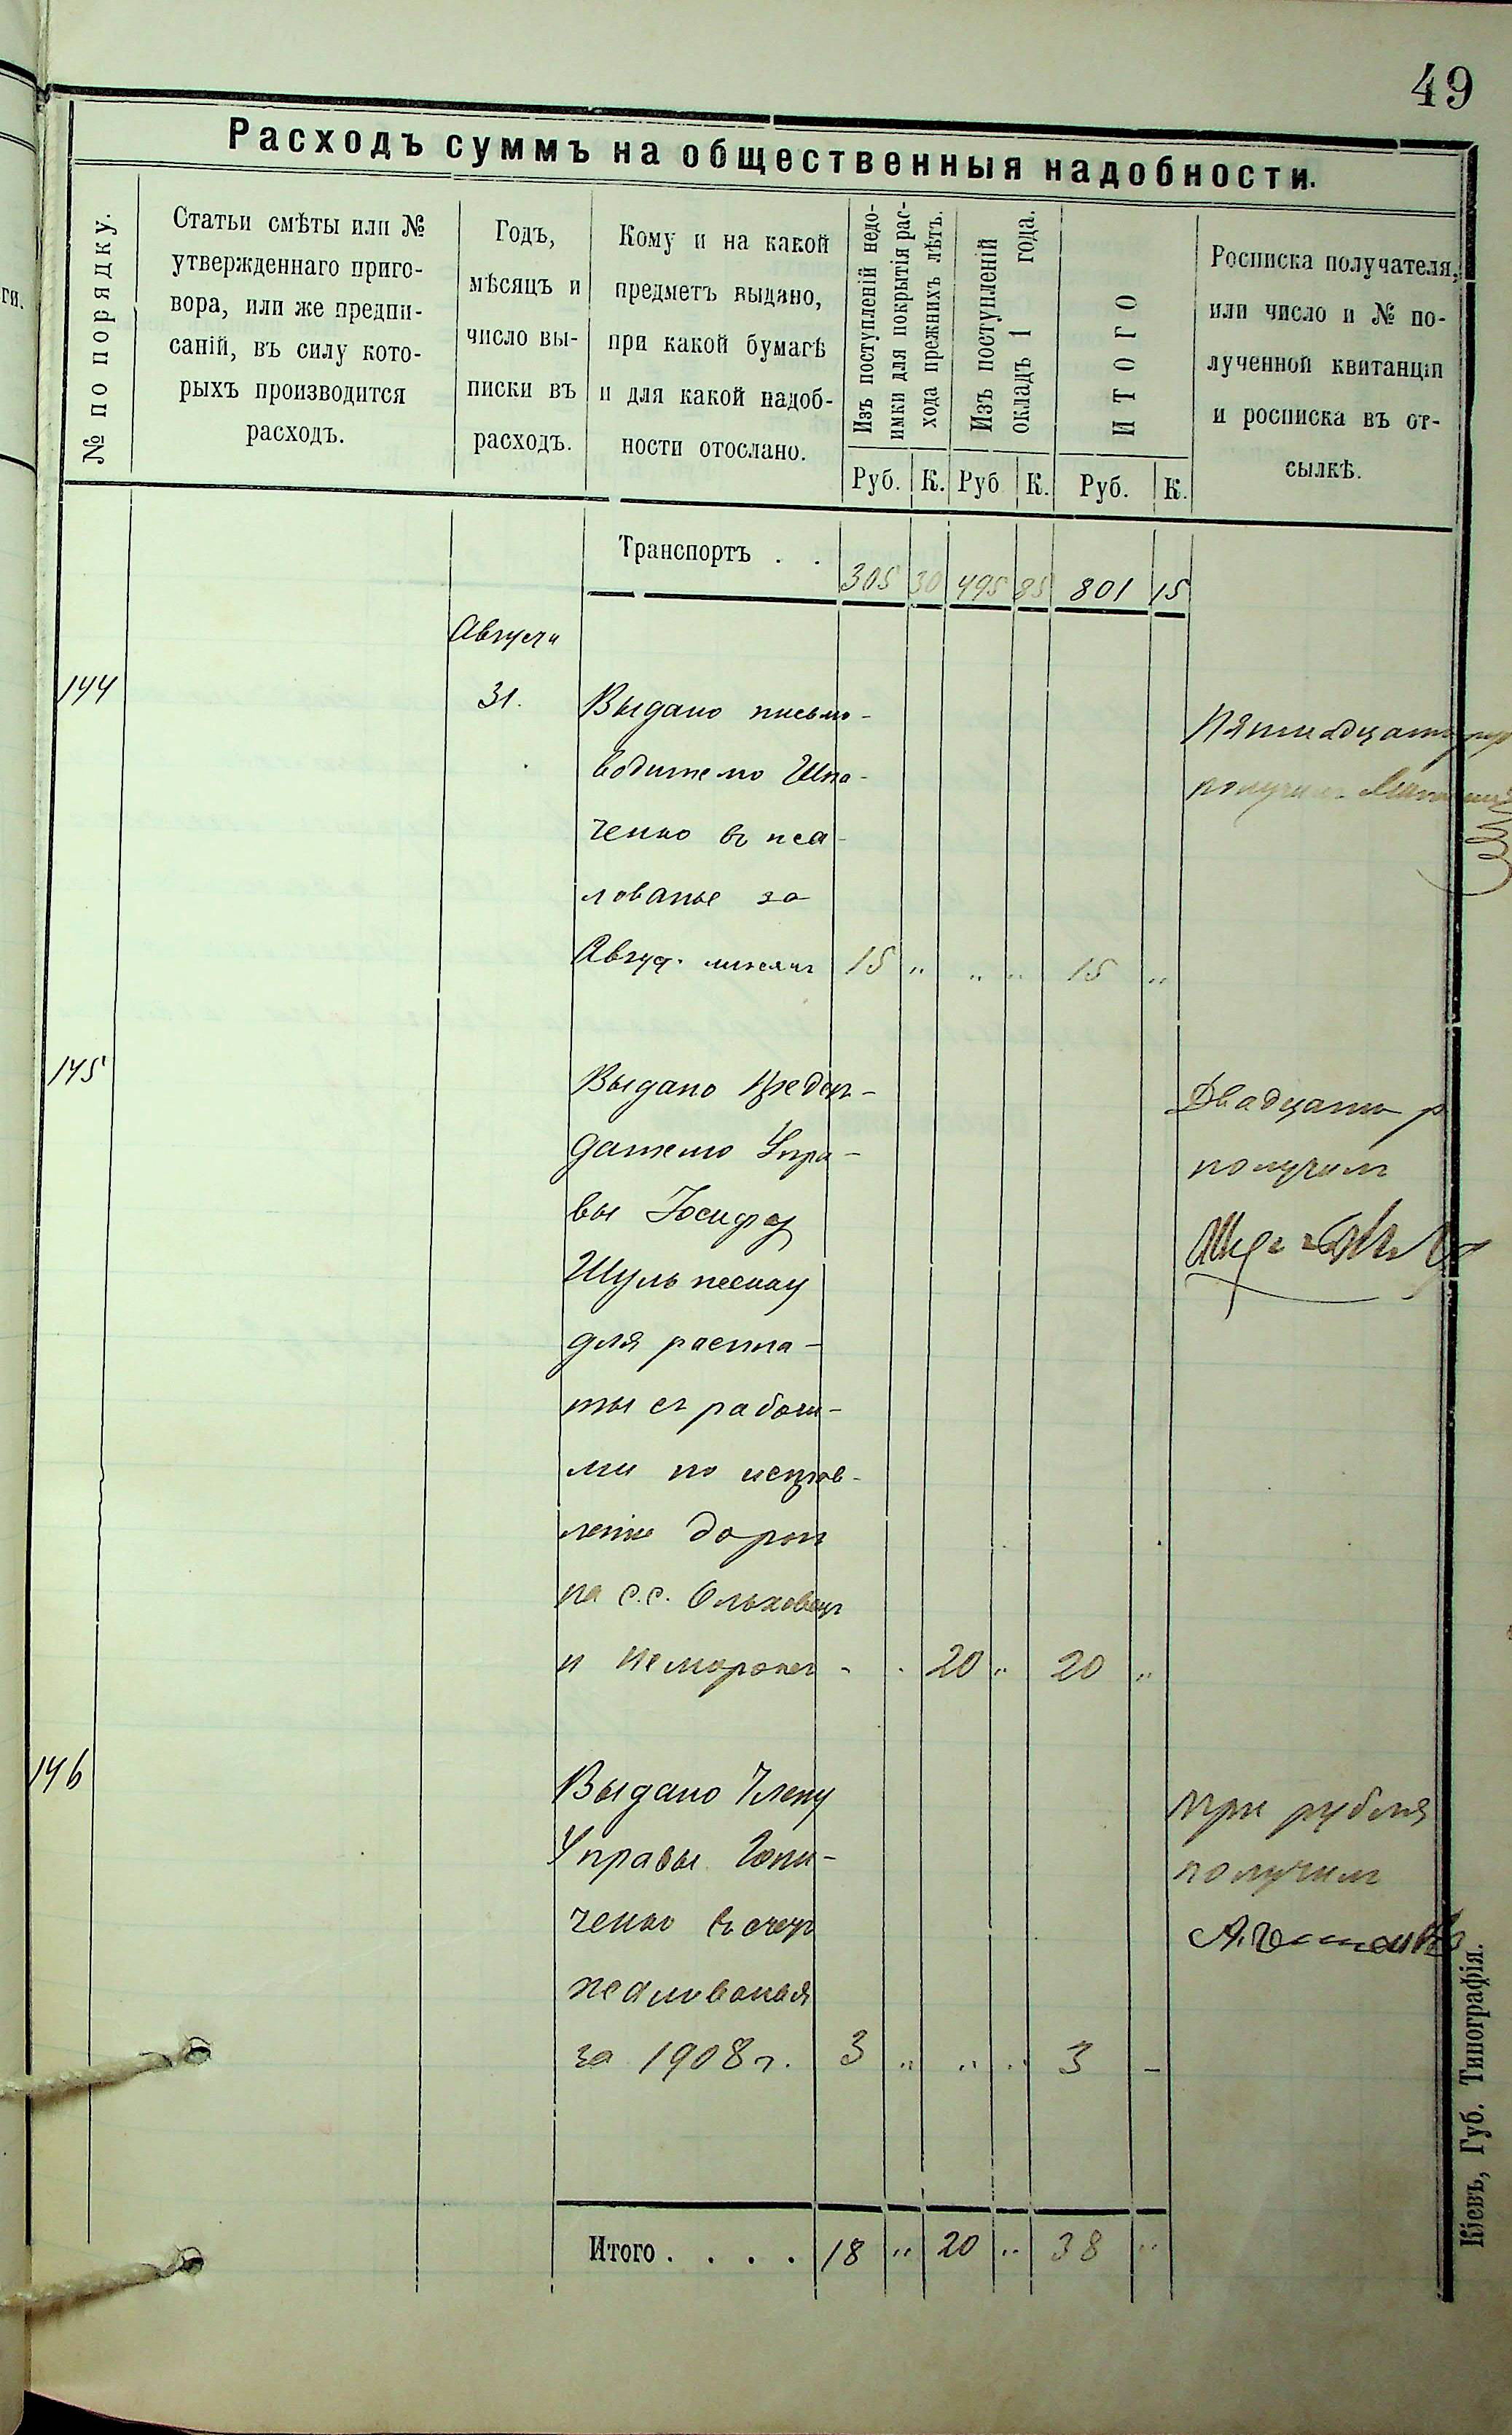 49
Расходъ суммъ на общественныя надобности.
№ по порядку.
Статьи смѣты или №
утвержденнаго приго-
вора, или же предпи-
саній, въ силу кото-
рыхъ производится
расходъ.
Годъ,
мѣсяцъ и
число вы-
писки въ
расходъ.
Кому и на какой
предметъ выдано,
при какой бумагѣ
и для какой надоб-
ности отослано.
Изъ поступленій недо-
имки для покрытія рас-
хода прежнихъ лѣтъ.
Изъ поступленій
окладъ 1 года.
ИТОГО
Росписка получателя,
или число и № по-
лученной квитанціи
и росписка въ от-
сылкѣ.
Руб. К. Руб К. Руб. К.
Транспортъ . . 305 30 495 85 801 15
Августа
144 31. Выдано письмо-
водителю
ченко въ жа-
лованье за
Август. мѣсяцъ 15 " " " 15 "
Пятнадцать
получилъ
145 Выдано Предсѣ-
дателю Упра-
вы Іосифу
для распла-
ты съ рабочи-
ми по исправ-
ленію дорогъ
на с.с. Ольховецъ
и Неморожъ - . 20 " 20 "
Двадцать р
получилъ
146 Выдано Члену
Управы Гони-
ченко въ счетъ
жалованья
за 1908 г. 3 " " " 3 -
три рубля
получилъ
Итого . . . . 18 " 20 " 38 "
Кіевъ, Губ. Типографія.